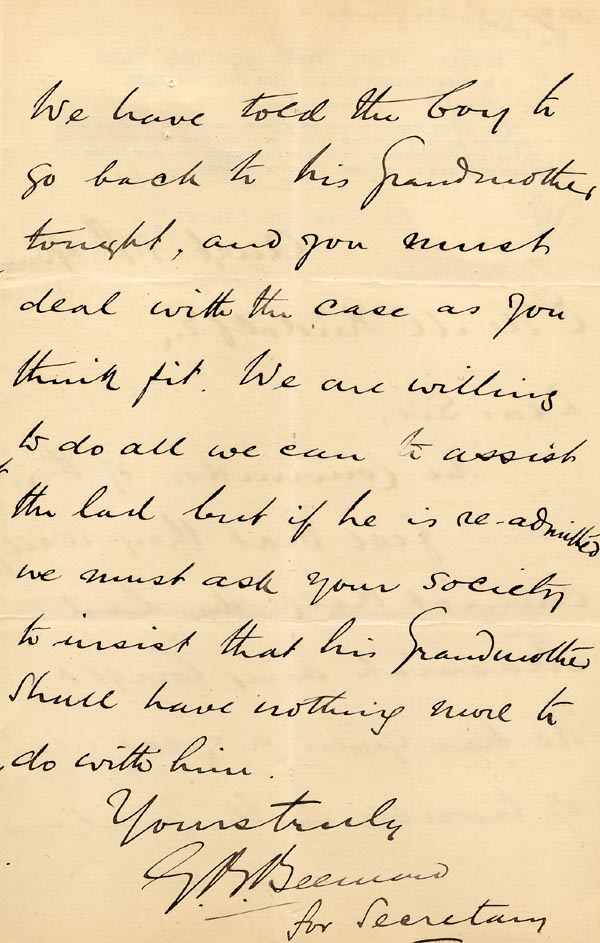 We have told the boy to
go back to his Grandmother
tonight, and you must
deal with the case as you
think fit. We are willing
to do all we can to assist
the lad but if he is re-admitted
we must ask your society
to insist that his Grandmother
shall have nothing more to
do with him.
Yours truly
G. B.
for Secretary